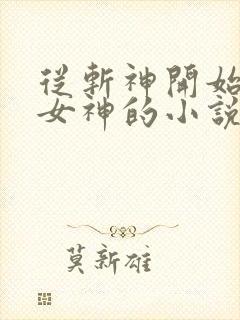 從斬神開始
女神的小說
莫新雄